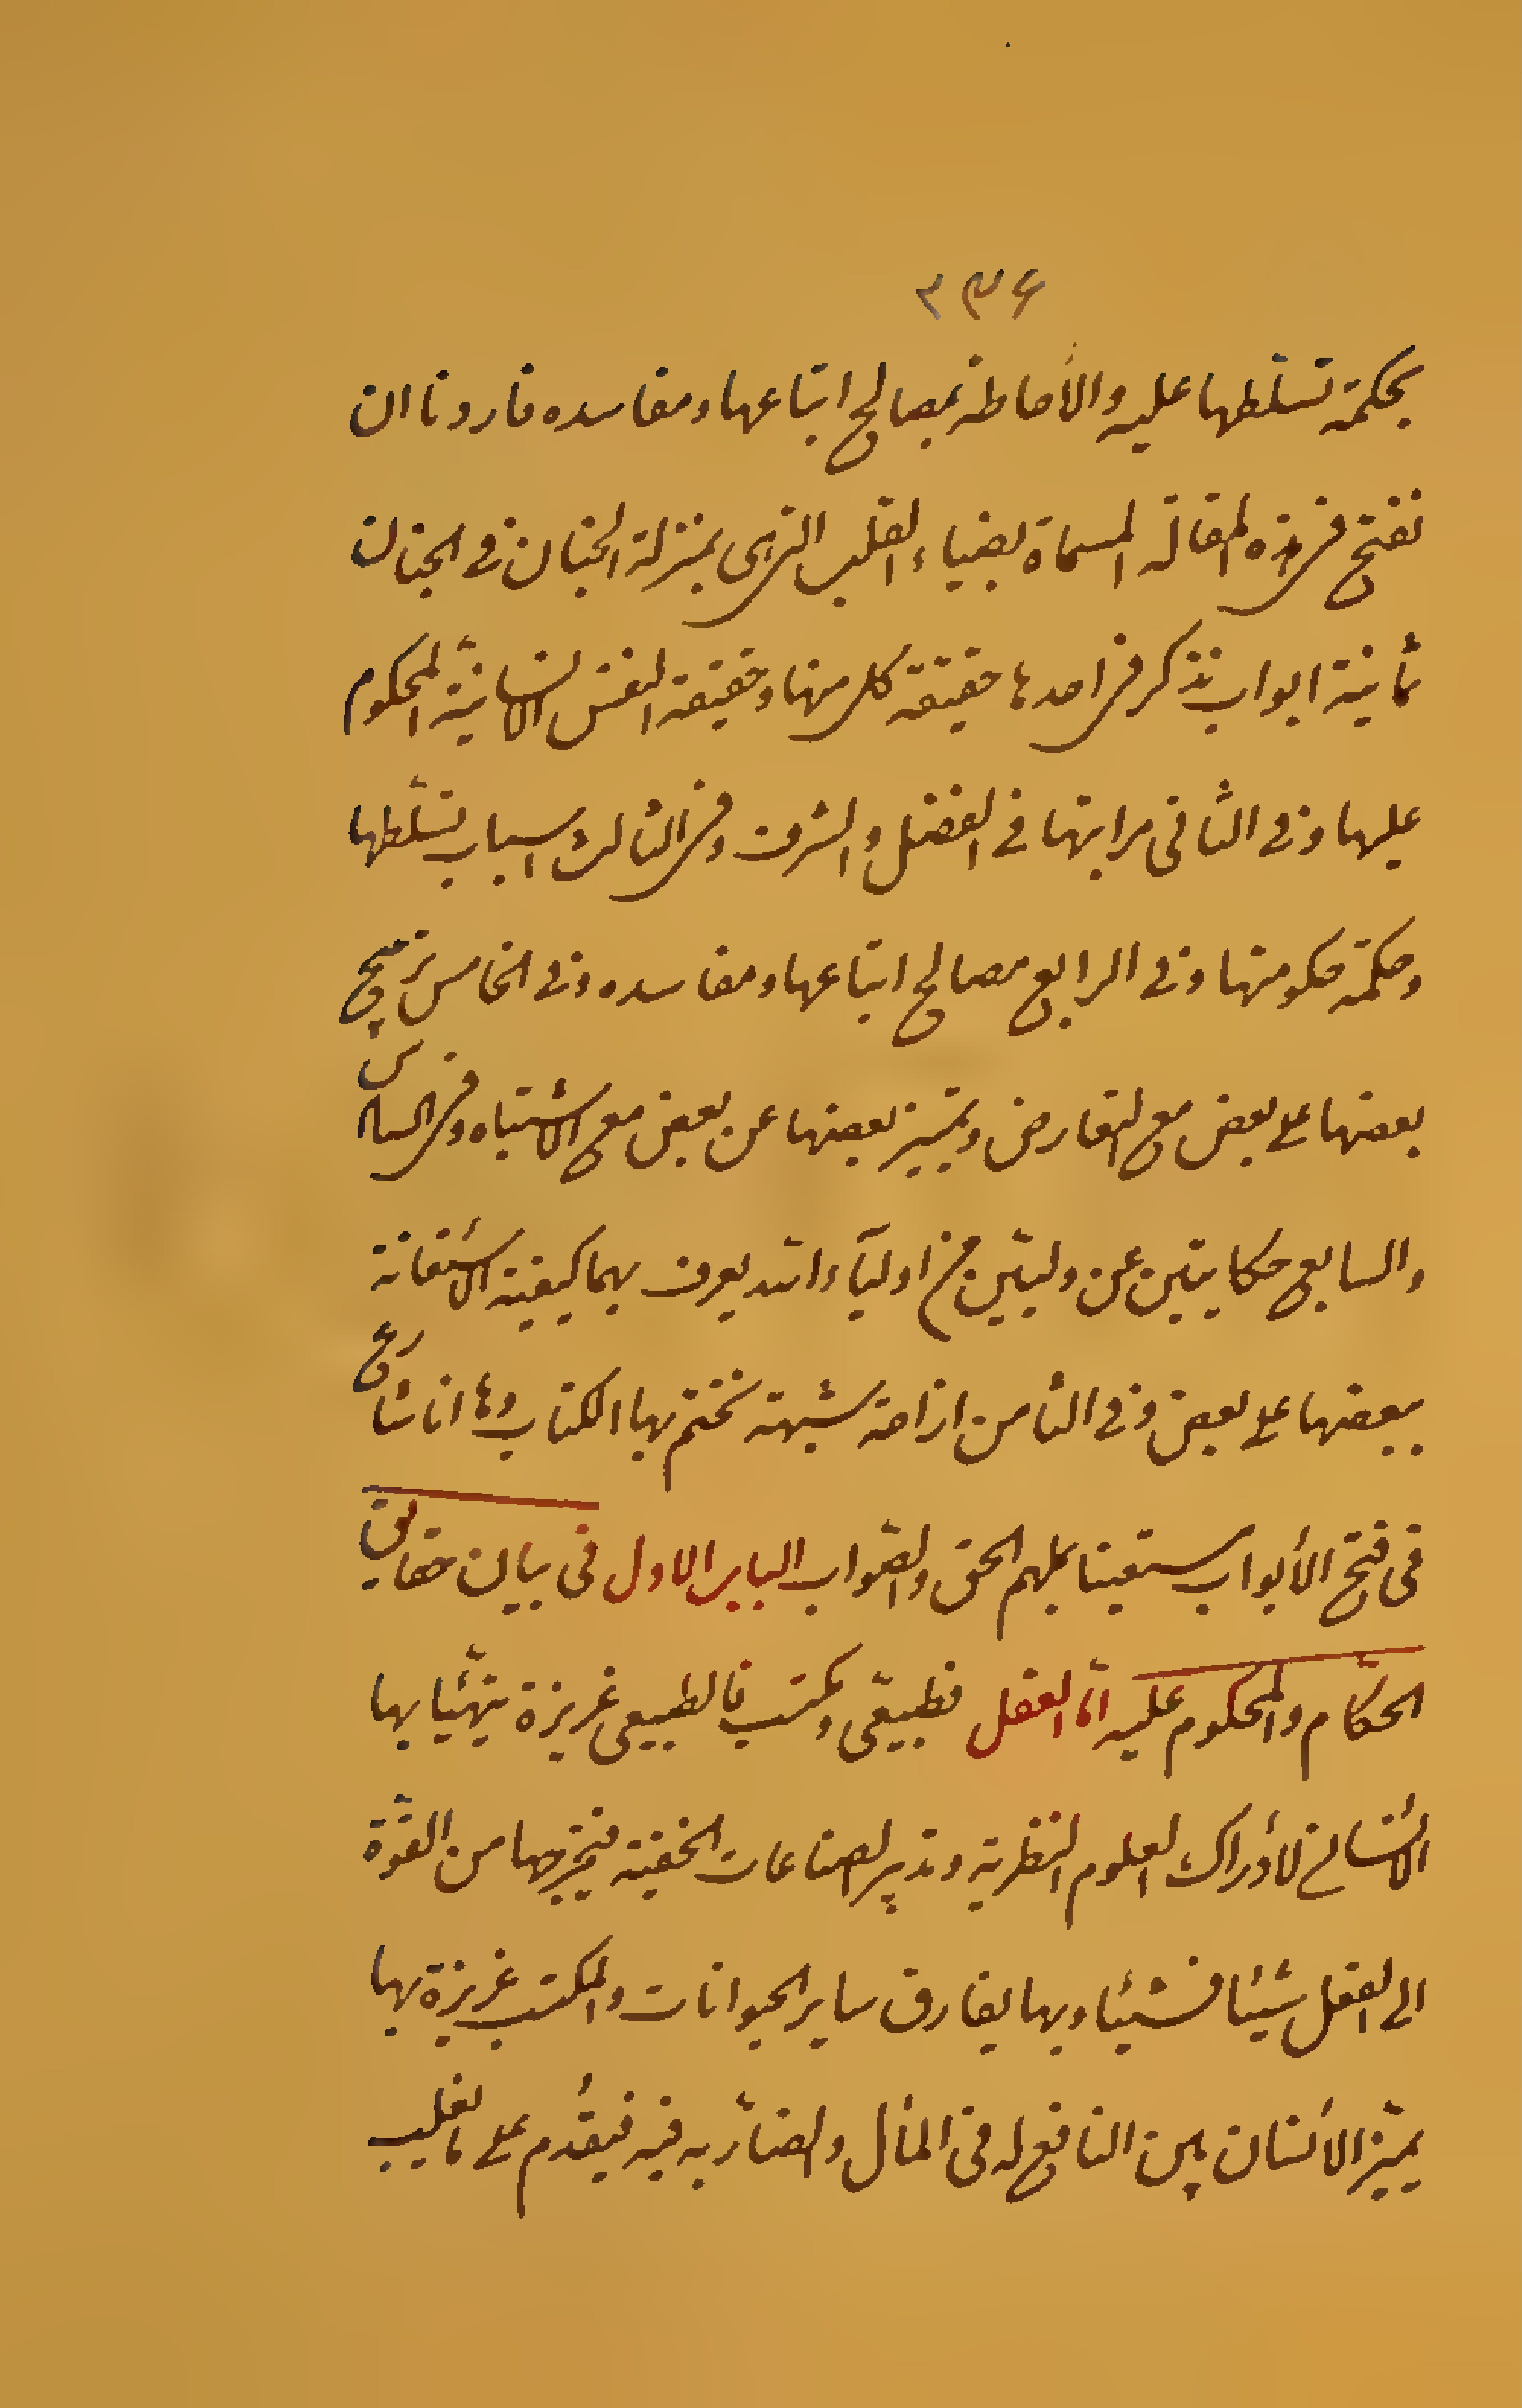 ٣٣٤
بحكمة تسلّطها عليه والأحاطة بمصالح اتباعها ومفاسده فاردنا ان
نفتح فى هذه المقالة المسماة بضياء القلب التى هى بمنزلة الجنان فى الجنان
ثمانية ابواب نذكر فى احدها حقيقة كل منها وحقيقة النفس الانسانيّة المحكوم
عليها وفى الثانى مراتبها فى الفضل والشرف وفى الثالث اسباب تسلّطها
وحكمة حكومتها وفى الرابع مصالح اتباعها ومفاسده وفى الخامس ترجيح
بعضها على بعض مع التعارض وتميز بعضها عن بعض مع الاشتباه وفى السادس
والسابع حكايتين عن وليّين من اولياء الله يعرف بهما كيفية الاستعانة
ببعضها على بعض وفى الثامن ازاحة شبهة نختم بها الكتاب وها انا شارع
فى فتح الأبواب مستعينا بملهم الحق والصّواب الباب الاول فى بيان حقايق
الحكّام والمحكوم عليه امّا العقل فطبيعّى ومكتسب فالطبيعى غريزة يتهيّأ بها
الأنسان لأدراك العلوم النظرية وتدبير الصناعات الخفية فيخرجها من القوّة
الى العقل شيئا فشيئا وبها يفارق ساير الحيوانات والمكتسب غريزة بها
يميّز الأنسان بين النافع له فى المأل والضارّ به فيه فيقدم على ما يجلب